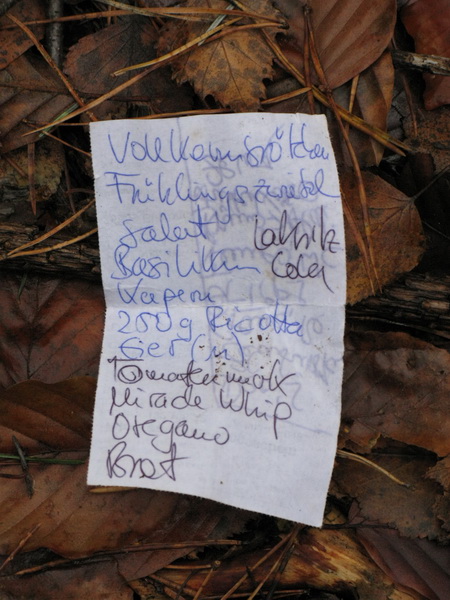 Vollkornbrötchen
Frühlingszwiebel
Salat
Lakritz
Basilikum
Cola
Kapern
250g Ricotta
Eier (M)
Tomatenmark
Miracle Whip
Oregano
Brot